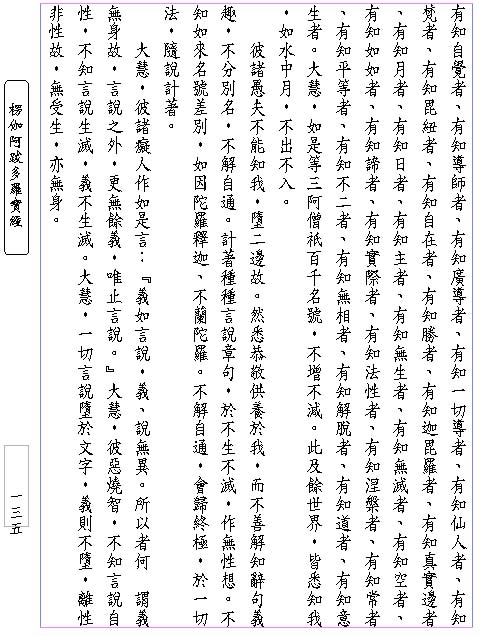 有知自覺者、有知導師者、有知廣導者、有知一切導者、有知仙人者、有知
梵者、有知毘紐者、有知自在者、有知勝者、有知迦毘羅者、有知真實邊者
、有知月者、有知日者、有知主者、有知無生者、有知無滅者、有知空者、
有知如如者、有知諦者、有知實際者、有知法性者、有知涅槃者、有知常者
、有知平等者、有知不二者、有知無相者、有知解脫者、有知道者、有知意
生者。大慧，如是等三阿僧祇百千名號，不增不減。此及餘世界，皆悉知我
，如水中月，不出不入。
彼諸愚夫不能知我，墮二邊故。然悉恭敬供養於我，而不善解知辭句義
趣，不分別名，不解自通。計著種種言說章句，於不生不滅，作無性想。不
知如來名號差別，如因陀羅釋迦、不蘭陀羅。不解自通，會歸終極，於一切
法，隨說計著。
大慧，彼諸癡人作如是言：『義如言說，義、說無異。所以者何　謂義
無身故，言說之外，更無餘義，唯止言說。』大慧，彼惡燒智，不知言說自
性，不知言說生滅，義不生滅。大慧，一切言說墮於文字，義則不墮，離性
非性故，無受生，亦無身。
楞伽阿跋多羅寶經
一三五